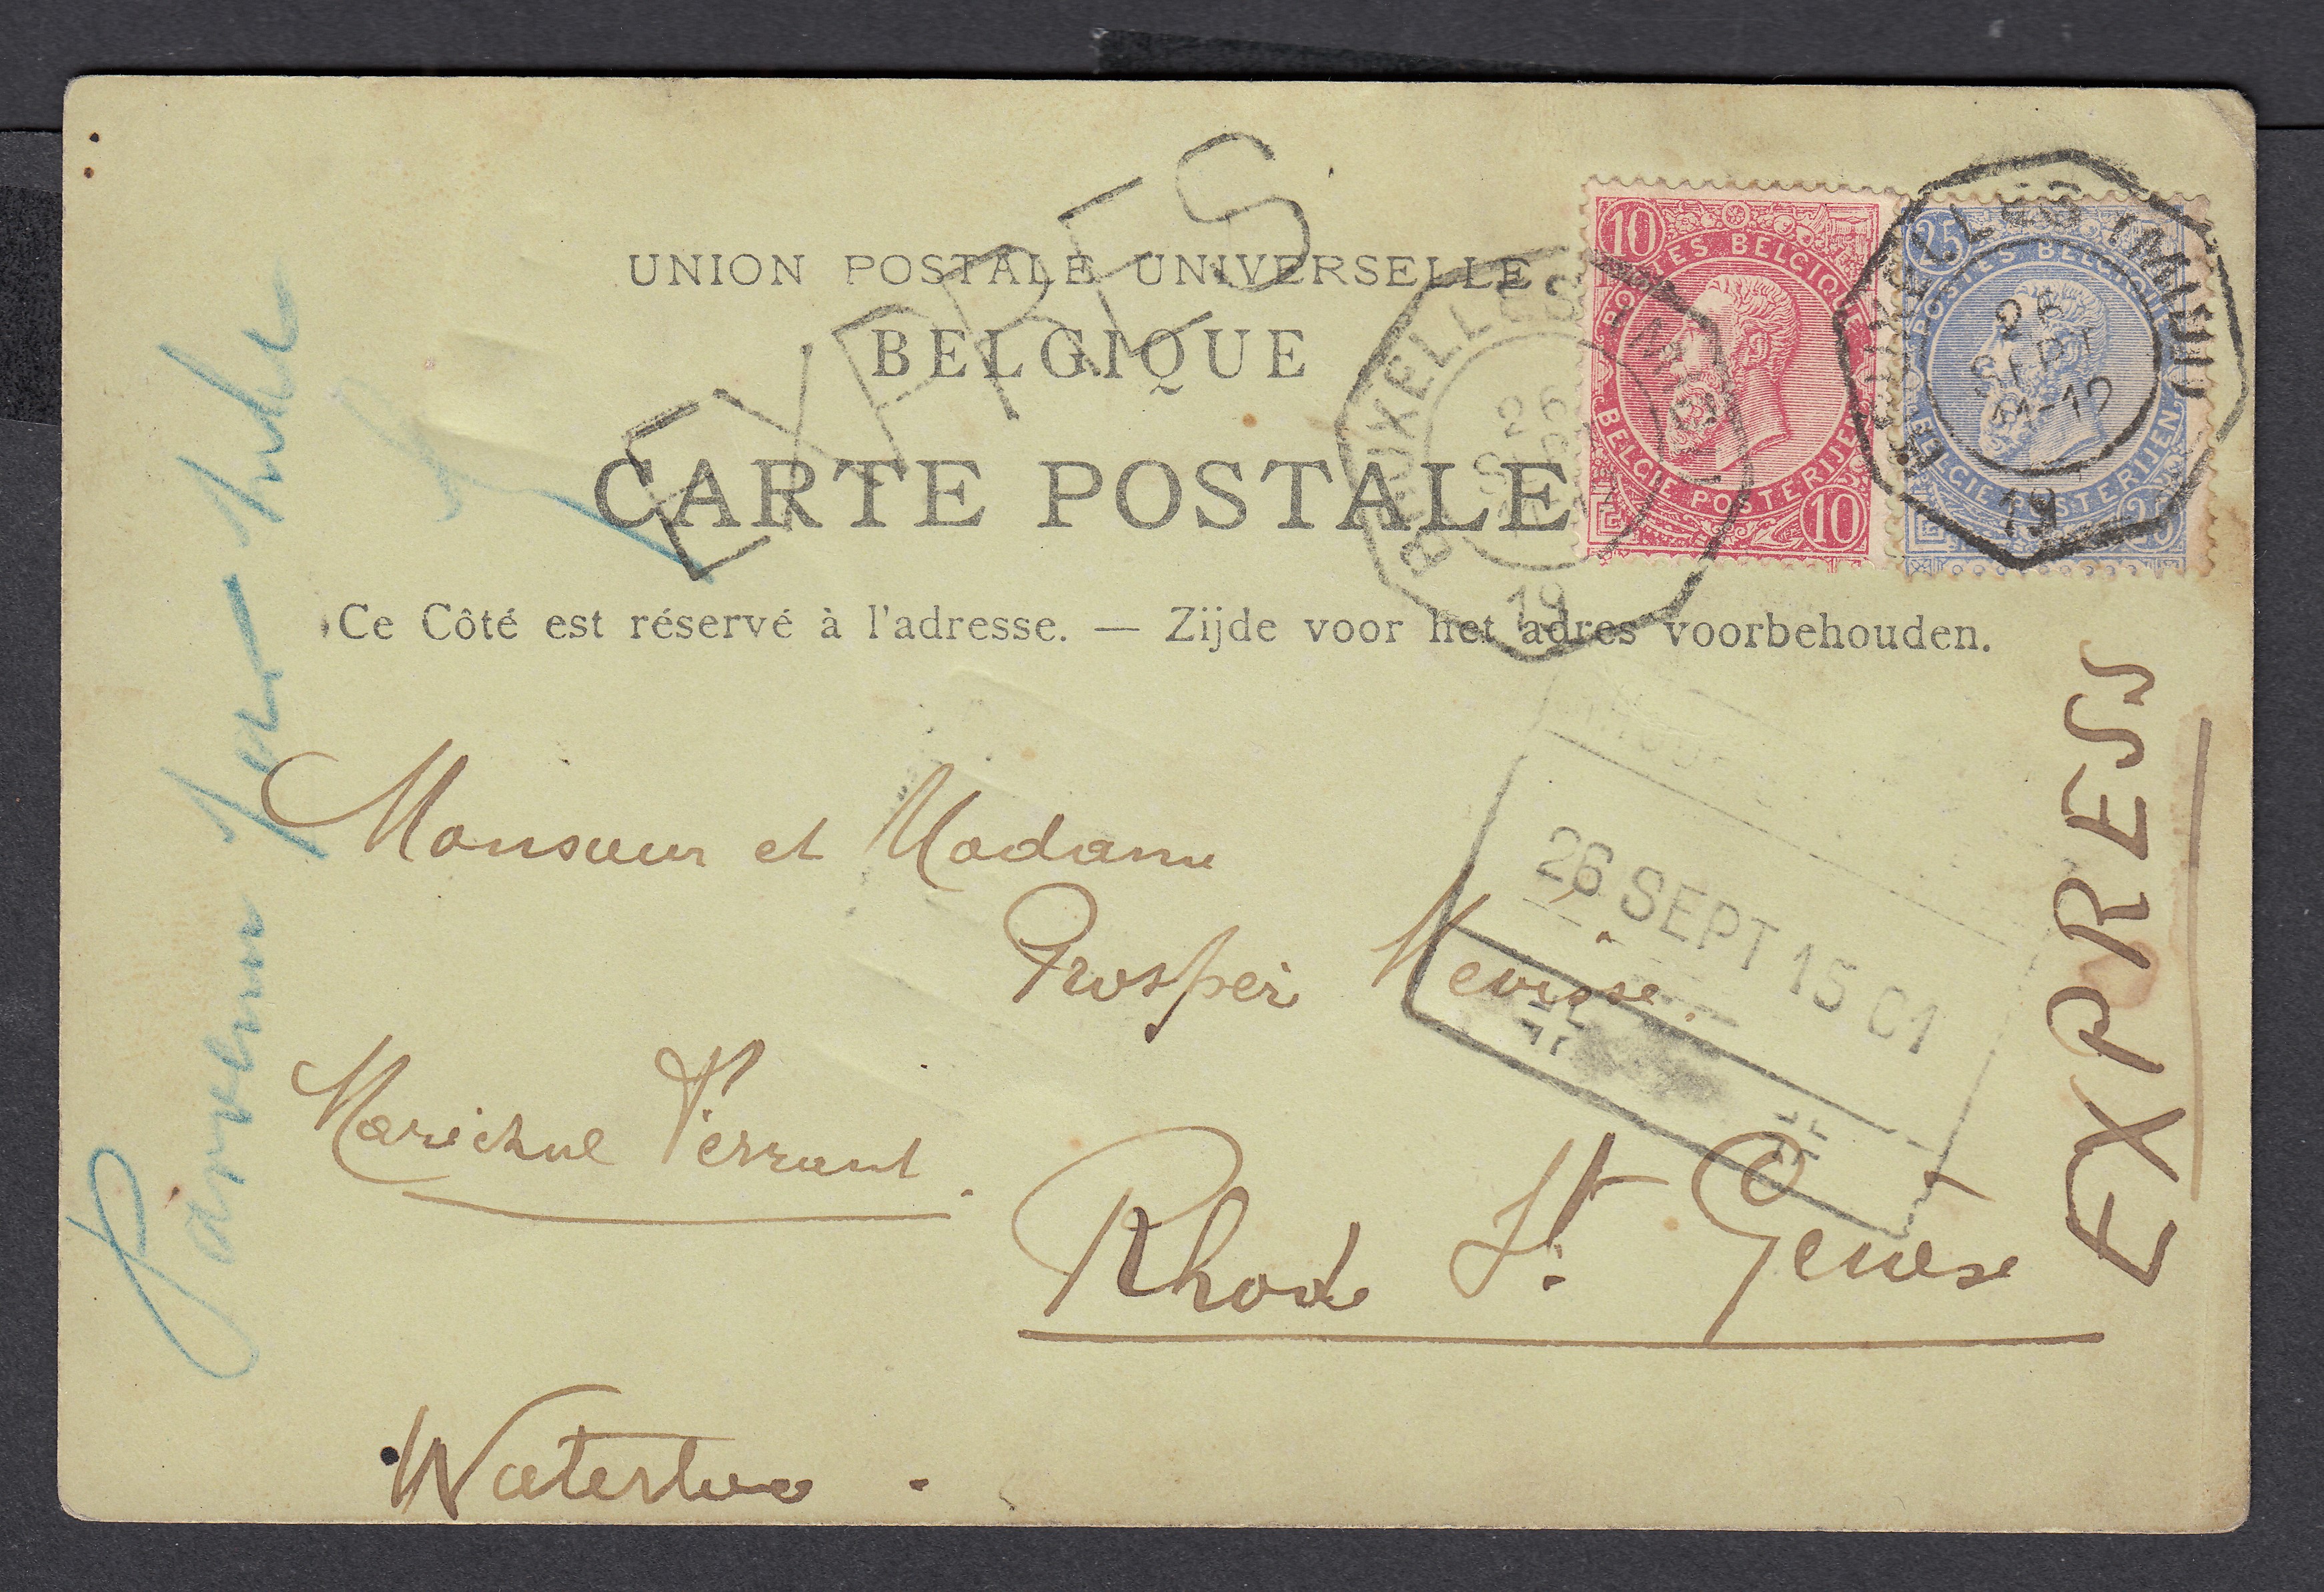 UNION POSTALE UNIVERSELLE
BELGIQUE
CARTE POSTALE
Ce Côté est réservé à l'adresse. — Zijde voor het adres voorbehouden.
EXPRES
10
POSTES BELGIQUE
BELGIE POSTERIJEN
10
25
POSTES BELGIQUE
BELGIE POSTERIJEN
25
BRUXELLES
26
19
BRUXELLES (MIDI)
26
SEPT
11-12
19
26 SEPT 15 01
EXPRESS
Monsieur et Madame
Prosper
Rhode St. Genese
Waterloo.